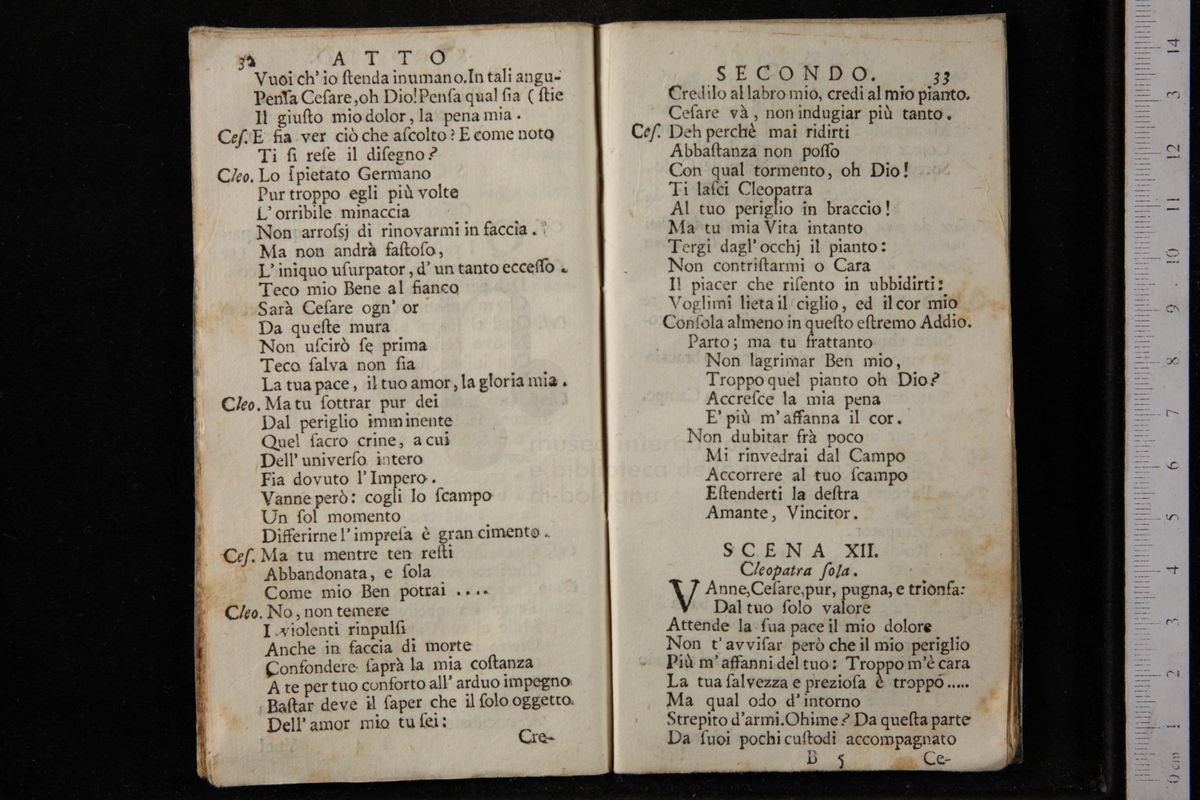 32 ATTO
Vuoi ch' io ſtenda inumano. In tali angu-
Penſa Ceſare, oh Dio! Penſa qual ſia (ſtie
Il giuſto mio dolor, la pena mia.
Ceſ. E fia ver ciò che aſcolto? E come noto
Ti ſi reſe il diſegno?
Cleo. Lo ſpietato Germano
Pur troppo egli più volte
L' orribile minaccia
Non arroſsj di rinovarmi in faccia.
Ma non andrà faſtoſo,
L' iniquo uſurpator, d' un tanto ecceſſo.
Teco mio Bene al fianco
Sarà Ceſare ogn' or
Da queſte mura
Non uſcirò ſe prima
Teco ſalva non fia
La tua pace, il tuo amor, la gloria mia.
Cleo. Ma tu ſottrar pur dei
Dal periglio imminente
Quel ſacro crine, a cui
Dell' univerſo intero
Fia dovuto l' Impero.
Vanne però: cogli lo ſcampo
Un ſol momento
Differirne l' impreſa è gran cimento.
Ceſ. Ma tu mentre ten reſti
Abbandonata, e ſola
Come mio Ben potrai ....
Cleo. No, non temere
I violenti rinpulſi
Anche in faccia di morte
Confondere ſaprà la mia coſtanza
A te per tuo conforto all' arduo impegno
Baſtar deve il ſaper che il ſolo oggetto
Dell' amor mio tu ſei:
Cre-
SECONDO. 33
Credilo al labro mio, credi al mio pianto.
Ceſare và, non indugiar più tanto.
Ceſ. Deh perchè mai ridirti
Abbaſtanza non poſſo
Con qual tormento, oh Dio!
Ti laſci Cleopatra
Al tuo periglio in braccio!
Ma tu mia Vita intanto
Tergi dagl' occhj il pianto:
Non contriſtarmi o Cara
Il piacer che riſento in ubbidirti:
Voglimi lieta il ciglio, ed il cor mio
Conſola almeno in queſto eſtremo Addio.
Parto; ma tu frattanto
Non lagrimar Ben mio,
Troppo quel pianto oh Dio?
Accreſce la mia pena
E' più m' affanna il cor.
Non dubitar frà poco
Mi rinvedrai dal Campo
Accorrere al tuo ſcampo
Eſtenderti la deſtra
Amante, Vincitor.
SCENA XII.
Cleopatra ſola.
VAnne, Ceſare, pur, pugna, e trionfa:
Dal tuo ſolo valore
Attende la ſua pace il mio dolore
Non t' avviſar però che il mio periglio
Più m' affanni del tuo: Troppo m'è cara
La tua ſalvezza e prezioſa è troppo.....
Ma qual odo d' intorno
Strepito d'armi. Ohime? Da queſta parte
Da ſuoi pochi cuſtodi accompagnato
B 5 Ce-
museo interna
e biblioteca de
di bologna
0 cm 1 2 3 4 5 6 7 8 9 10 11 12 13 14